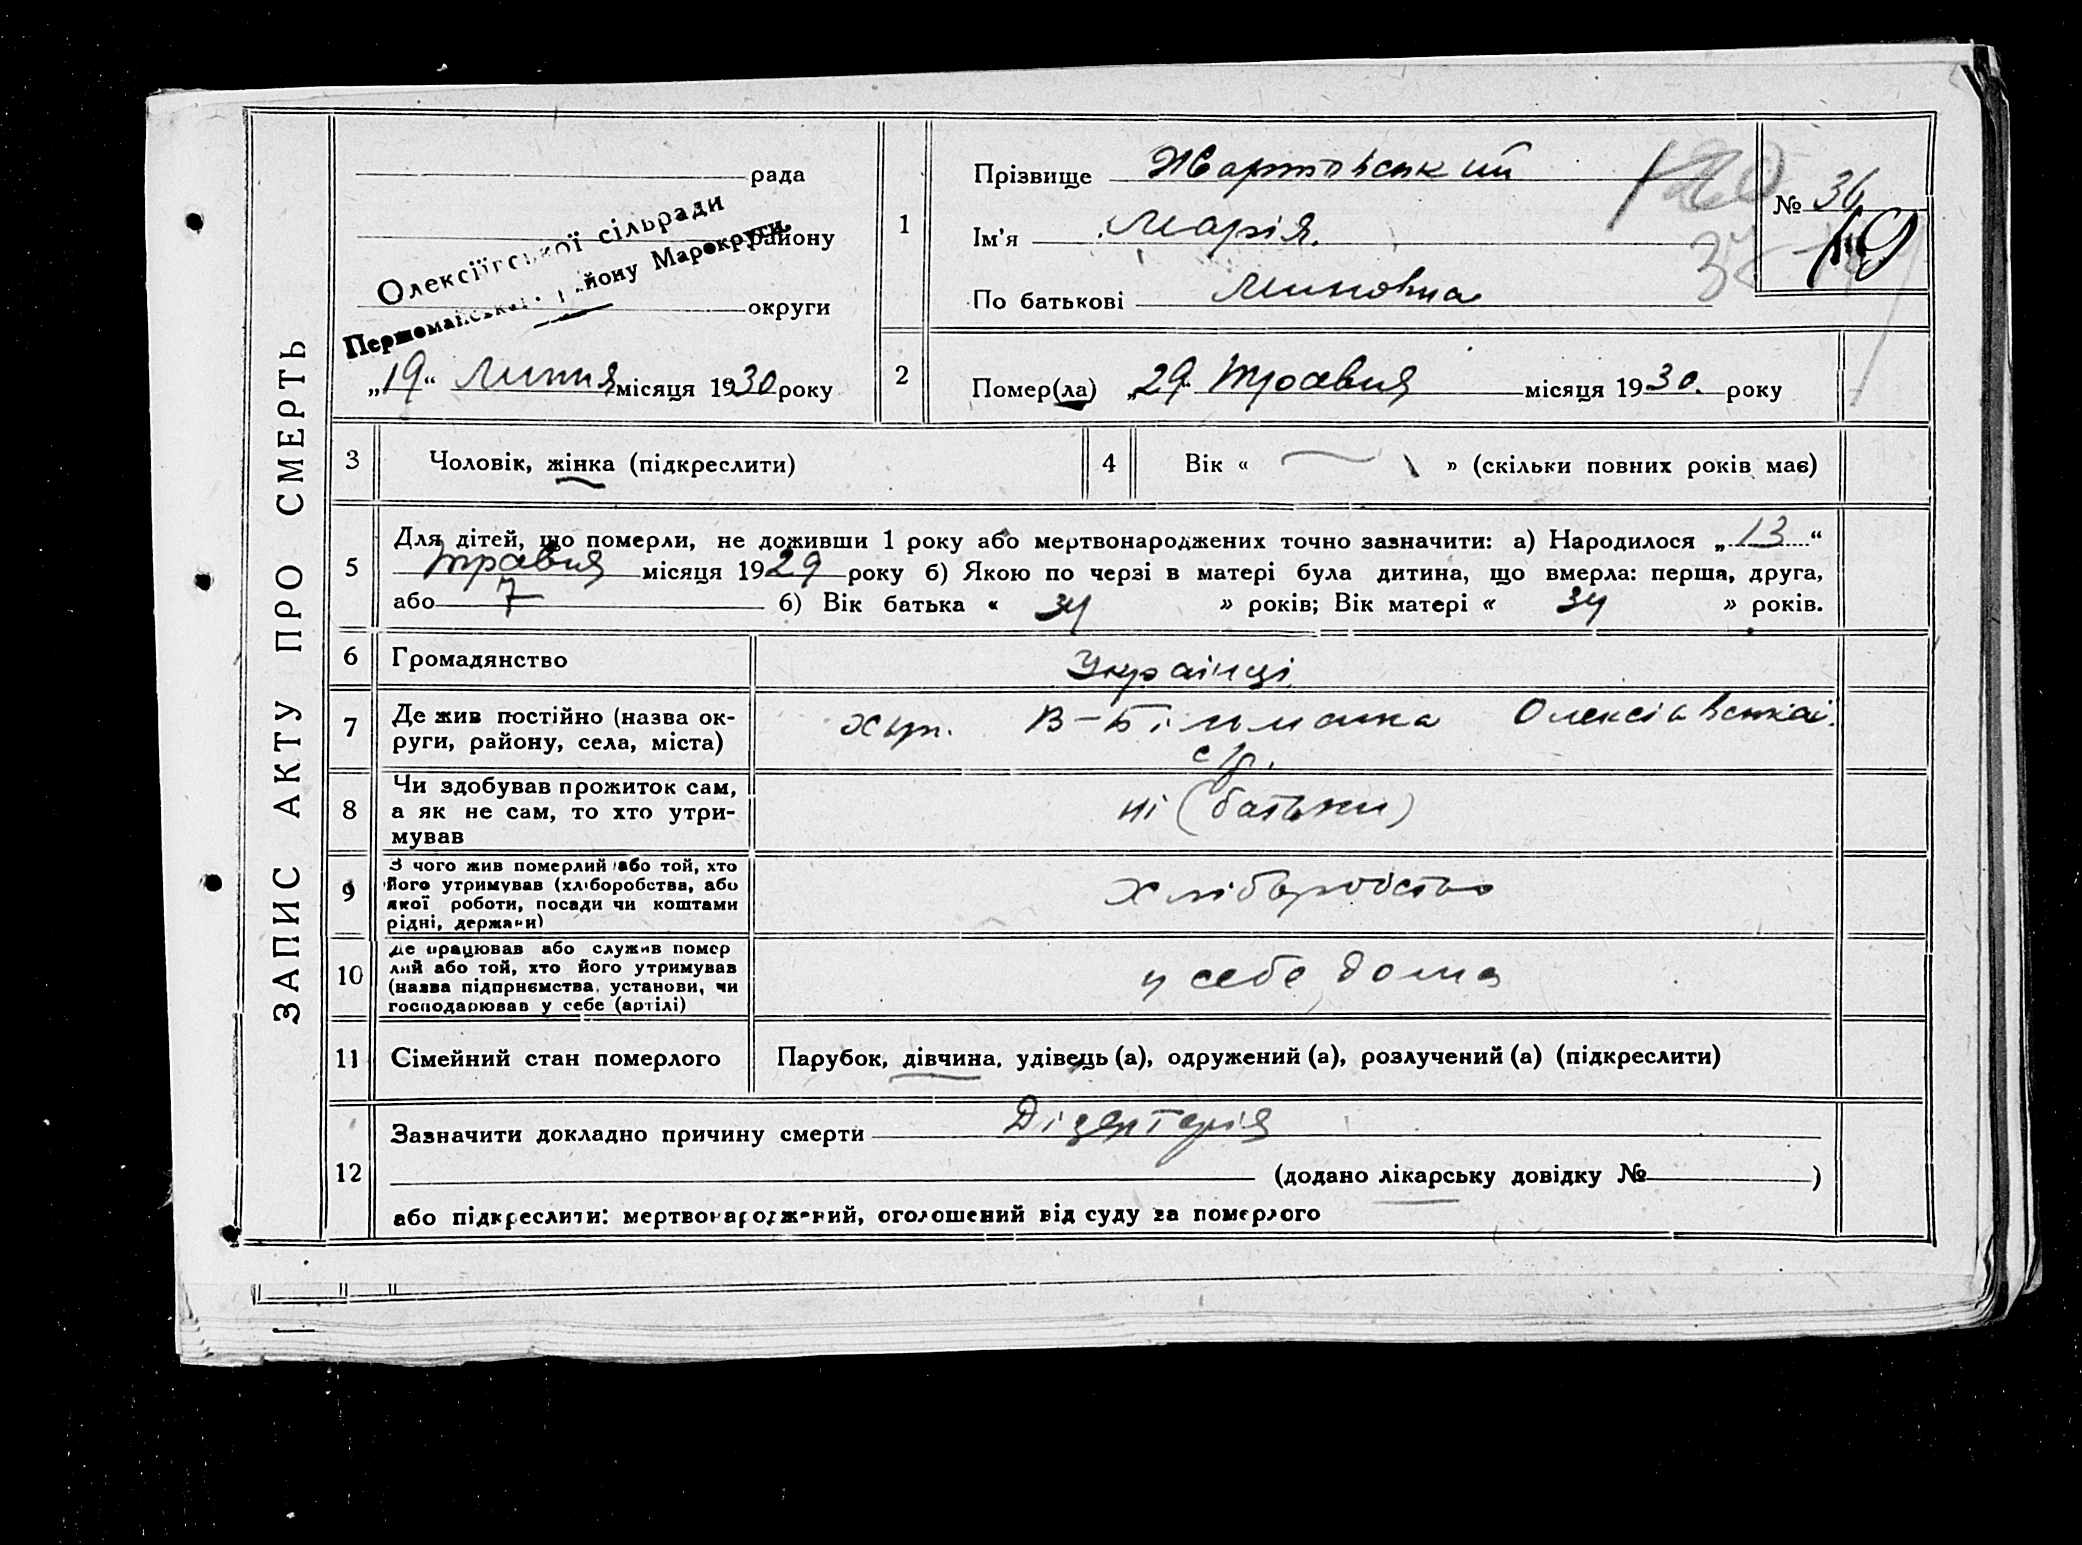 ЗАПИС АКТУ ПРО СМЕРТЬ
рада
району
округи
Олексіївської сільради
Першомайськ району Марокруги
„19“ Липня місяця 1930 року
1
Прізвище Жартовський
Ім'я Марія
По батькові
№ 36
2
Помер(ла) „29 Травня місяця 1930. року
3
Чоловік, жінка (підкреслити)
4
Вік « » (скільки повних років має)
5
Для дітей, що померли, не доживши 1 року або мертвонароджених точно зазначити: а) Народилося „13“
травня місяця 1929 року б) Якою по черзі в матері була дитина, що вмерла: перша, друга,
або 7 б) Вік батька « 34 » років; Вік матері « 34 » років.
6
Громадянство
Українці
7
Де жив постійно (назва ок-
руги, району, села, міста)
хут. В-Більманка Олексіавської
с/р.
8
Чи здобував прожиток сам,
а як не сам, то хто утри-
мував
ні (батьки)
9
З чого жив померлий або той, хто
його утримував (хліборобства, або
якої роботи, посади чи коштами
рідні, держави)
хліборобство
10
Де працював або служив помер
лий або той, хто його утримував
(назва підприємства, установи, чи
господарював у себе (артілі)
у себе дома
11
Сімейний стан померлого
Парубок, дівчина, удівець (а), одружений (а), розлучений (а) (підкреслити)
12
Зазначити докладно причину смерти Дізентерія
(додано лікарську довідку № )
або підкреслити: мертвонароджений, оголошений від суду за померлого